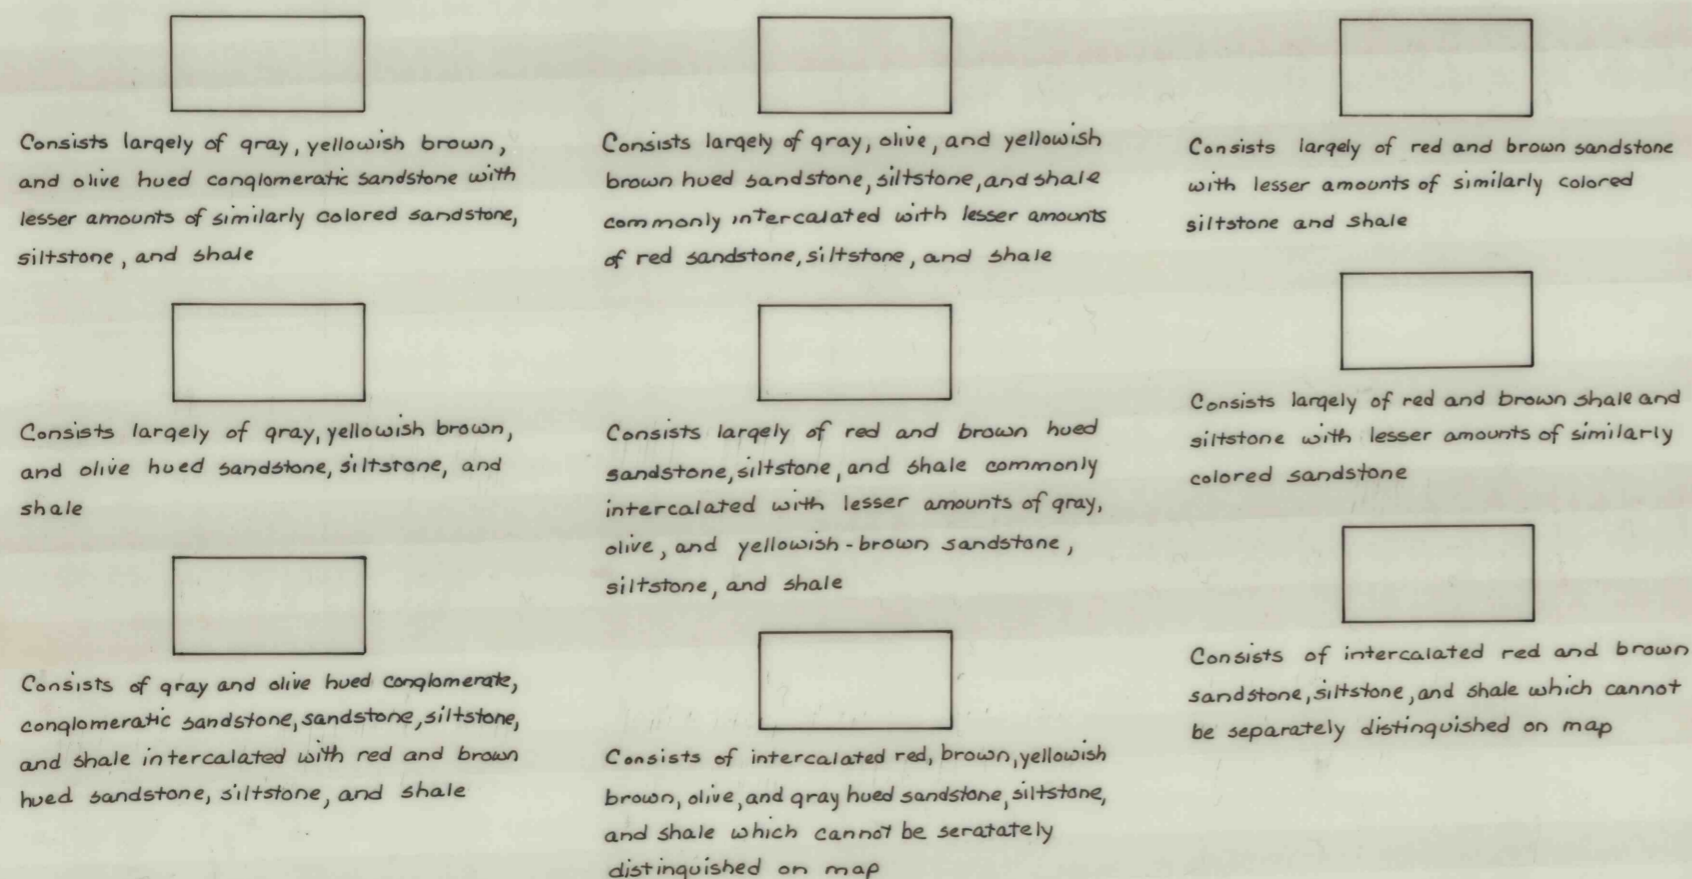 Consists largely of gray, yellowish brown,
and olive hued conglomeratic sandstone with
lesser amounts of similarly colored sandstone,
siltstone, and shale
Consists largely of gray, yellowish brown,
and olive hued sandstone, siltstone, and
shale
Consists of gray and olive hued conglomerate,
conglomeratic sandstone, sandstone, siltstone,
and shale intercalated with red and brown
hued sandstone, siltstone, and shale
Consists largely of gray, olive, and yellowish
brown hued sandstone, siltstone, and shale
commonly intercalated with lesser amounts
of red sandstone, siltstone, and shale
Consists largely of red and brown hued
sandstone, siltstone, and shale commonly
intercalated with lesser amounts of gray,
olive, and yellowish-brown sandstone,
siltstone, and shale
Consists of intercalated red, brown, yellowish
brown, olive, and gray hued sandstone, siltstone,
and shale which cannot be seratately
distinguished on map
Consists largely of red and brown sandstone
with lesser amounts of similarly colored
siltstone and shale
Consists largely of red and brown shale and
siltstone with lesser amounts of similarly
colored sandstone
Consists of intercalated red and brown
sandstone, siltstone, and shale which cannot
be separately distinguished on map